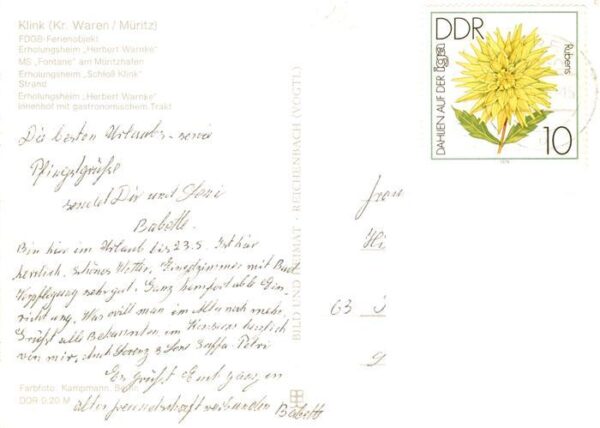 Klink (Kr. Waren / Müritz)
FDGB-Ferienobjekt
Erholungsheim „Herbert Warnke"
MS „Fontane" am Müritzhafen
Erholungsheim „Schloß Klink"
Strand
Erholungsheim „Herbert Warnke"
Innenhof mit gastronomischem Trakt
Die besten Urlaubs- sowie
Pfingstgrüße
sendet Dir und
Babette.
Bin hier im Urlaub bis 23.5. Ist hier
herrlich. Schönes Wetter. Einzelzimmer mit Bad
Verpflegung sehr gut. Ganz komfortable Ein-
richtung. Was will man im Alter noch mehr.
Grüßt alle Bekannten im herzlich
von mir, auch Lorenz &
Es grüßt Euch ganz in
alter Freundschaft verbunden Babett
Farbfoto: Kampmann,
DDR 0,20 M
BILD UND HEIMAT · REICHENBACH (VOGTL)
DDR
DAHLIEN AUF DER
Rubens
10
1979
Frau
Hi
63